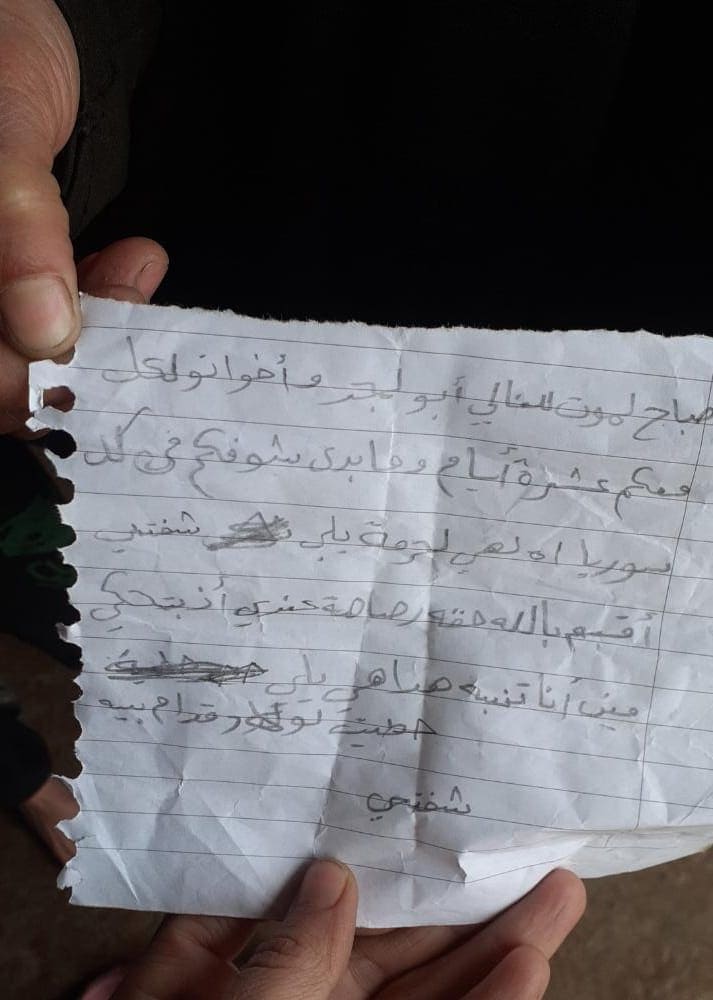 صباح لموت للغالي أبو لجدر و أخوانو لكل
معكم عشرة أيام وما بدي شوفكم في كل
سوريا اه لهي لحرمة يلي شفتي
أقسم بالله حقه رصاصة عندي أذبتحكي
مين أنا تنبه هيا هي يلي
حطيت لو قدام بيه
شفتي